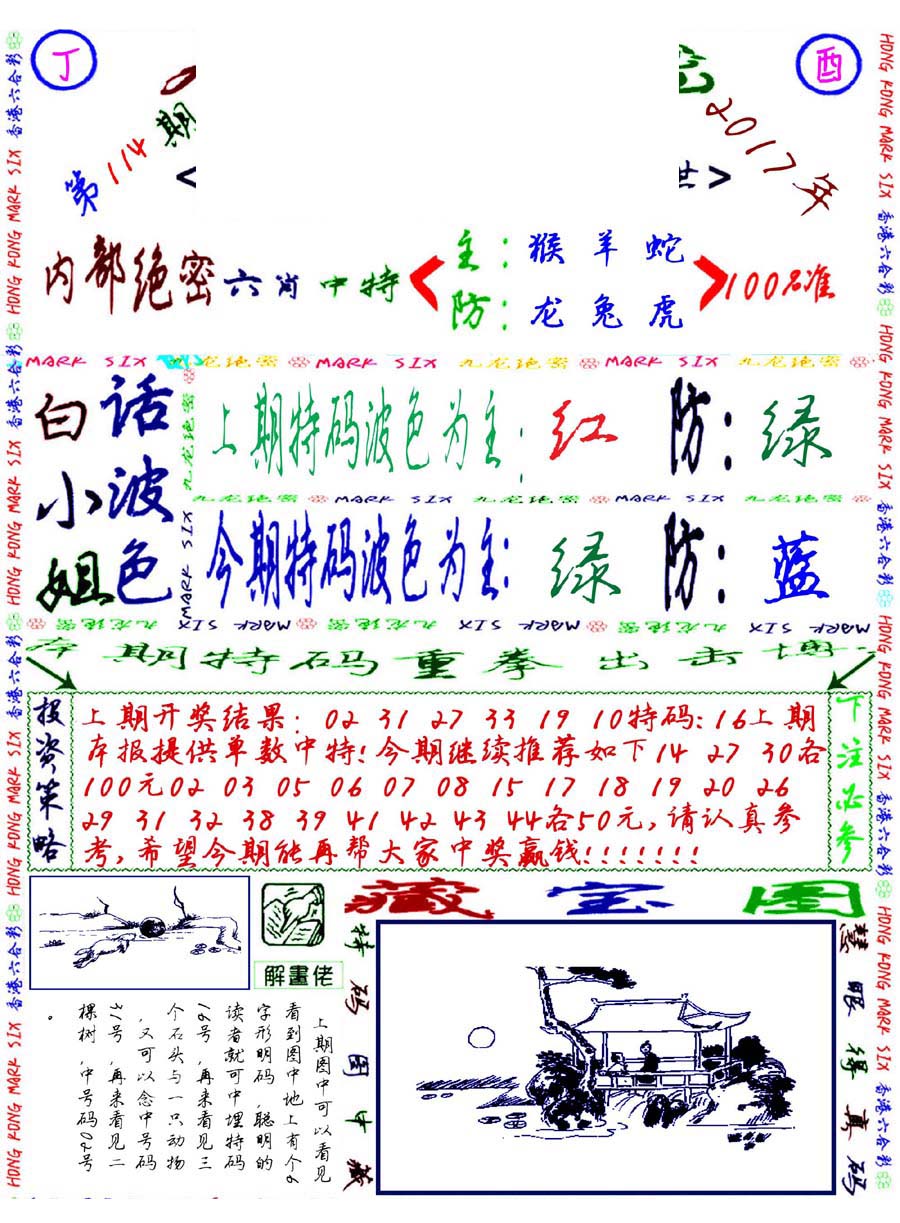 丁
酉
第114期
2017年
内部绝密六肖中特
主：猴羊蛇
防：龙兔虎
100%准
MARK SIX 九龙绝密 MARK SIX 九龙绝密 MARK SIX 九龙绝密
白话
小波
姐色
上期特码波色为主：红 防：绿
九龙绝密 MARK SIX 九龙绝密 MARK SIX 九龙绝密
今期特码波色为主：绿 防：蓝
九龙绝密 MARK SIX
MARK SIX 九龙绝密 MARK SIX 九龙绝密 MARK SIX 九龙绝密
期特码重拳出击
投资策略
上期开奖结果：02 31 27 33 19 10特码：16上期
本报提供单数中特！今期继续推荐如下14 27 30各
100元02 03 05 06 07 08 15 17 18 19 20 26
29 31 32 38 39 41 42 43 44各50元，请认真参
考，希望今期能再帮大家中奖赢钱！！！！！！！
下注必参
解畫佬
上期图中可以看见
看到图中地上有个6
字形明码，聪明的
读者就可中埋特码
16号，再来看见三
个石头与一只动物
，又可以念中号码
31号，再来看见二
棵树，中号码02号
。
藏宝图
特码图中藏
慧眼得真码
HONG KONG MARK SIX 香港六合彩 HONG KONG MARK SIX 香港六合彩 HONG KONG MARK SIX 香港六合彩 HONG KONG MARK SIX 香港六合彩
HONG KONG MARK SIX 香港六合彩 HONG KONG MARK SIX 香港六合彩 HONG KONG MARK SIX 香港六合彩 HONG KONG MARK SIX 香港六合彩